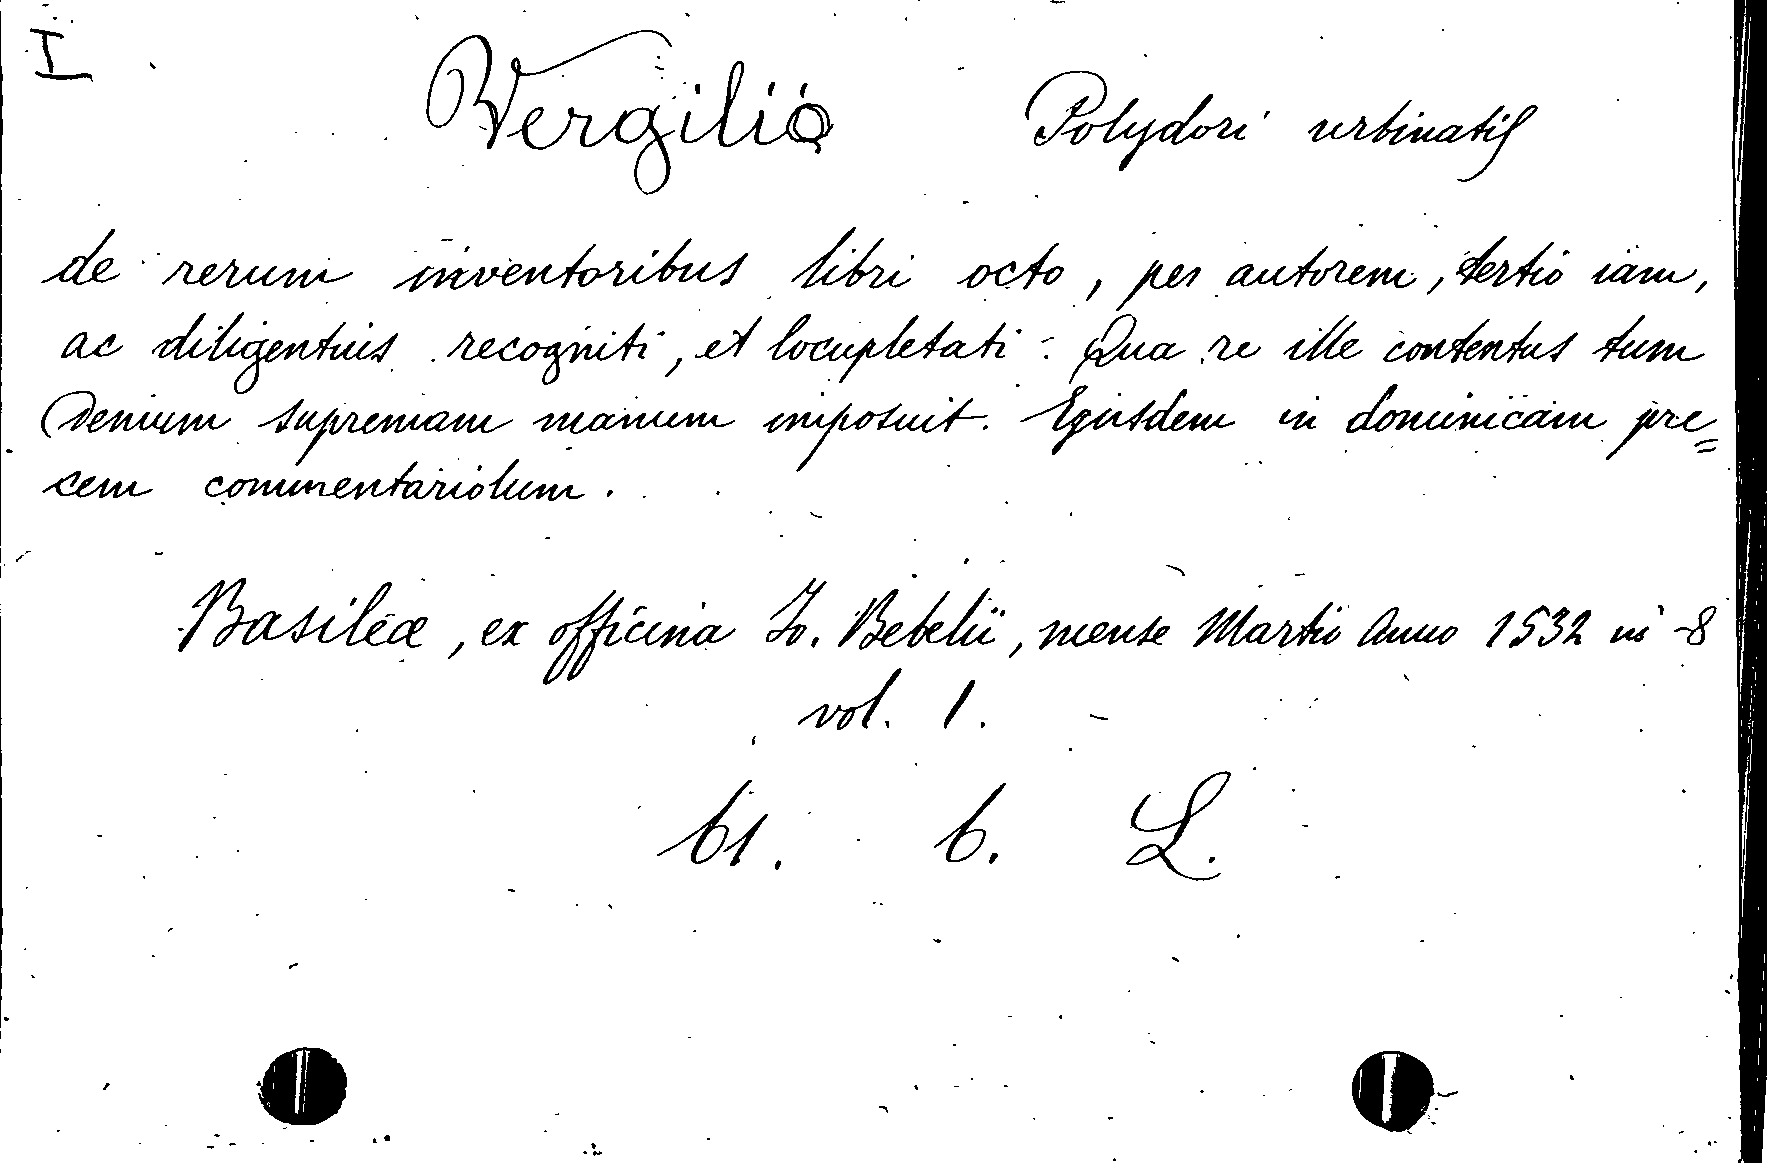 I
Vergilio Polydori urbinatis
de rerum inventoribus libri octo, per autorem, tertio iam,
ac diligentius recogniti, et locupletati. Qua re ille contentus tum
Denium supremam manum imposuit. Ejusdem in dominicam pre=
cem commentariolum.
Basileæ, ex officina Jo. Bebelii, mense Martio Anno 1532 in -8
vol. 1.
61. 6. L.